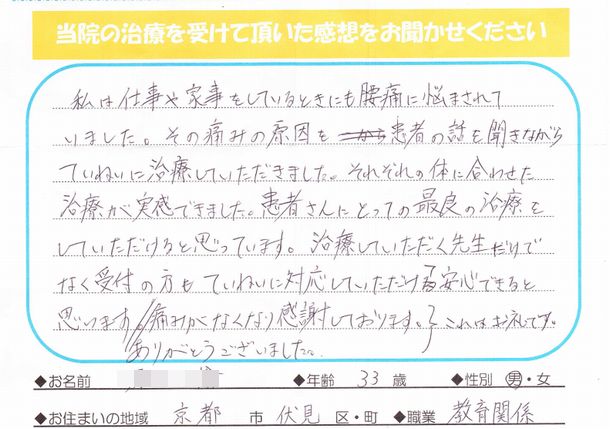 当院の治療を受けて頂いた感想をお聞かせください
私は仕事や家事をしているときにも腰痛に悩まされて
いました。その痛みの原因を患者の話を聞きながら
ていねいに治療していただきました。それぞれの体に合わせた
治療が実感できました。患者さんにとっての最良の治療を
していただけると思っています。治療していただく先生だけで
なく受付の方もていねいに対応していただけ安心できると
思います。痛みがなくなり感謝しております。これはお礼です。
ありがとうございました。
◆お名前 ◆年齢 33 歳 ◆性別 男・女
◆お住まいの地域 京都 市 伏見 区・町 ◆職業 教育関係